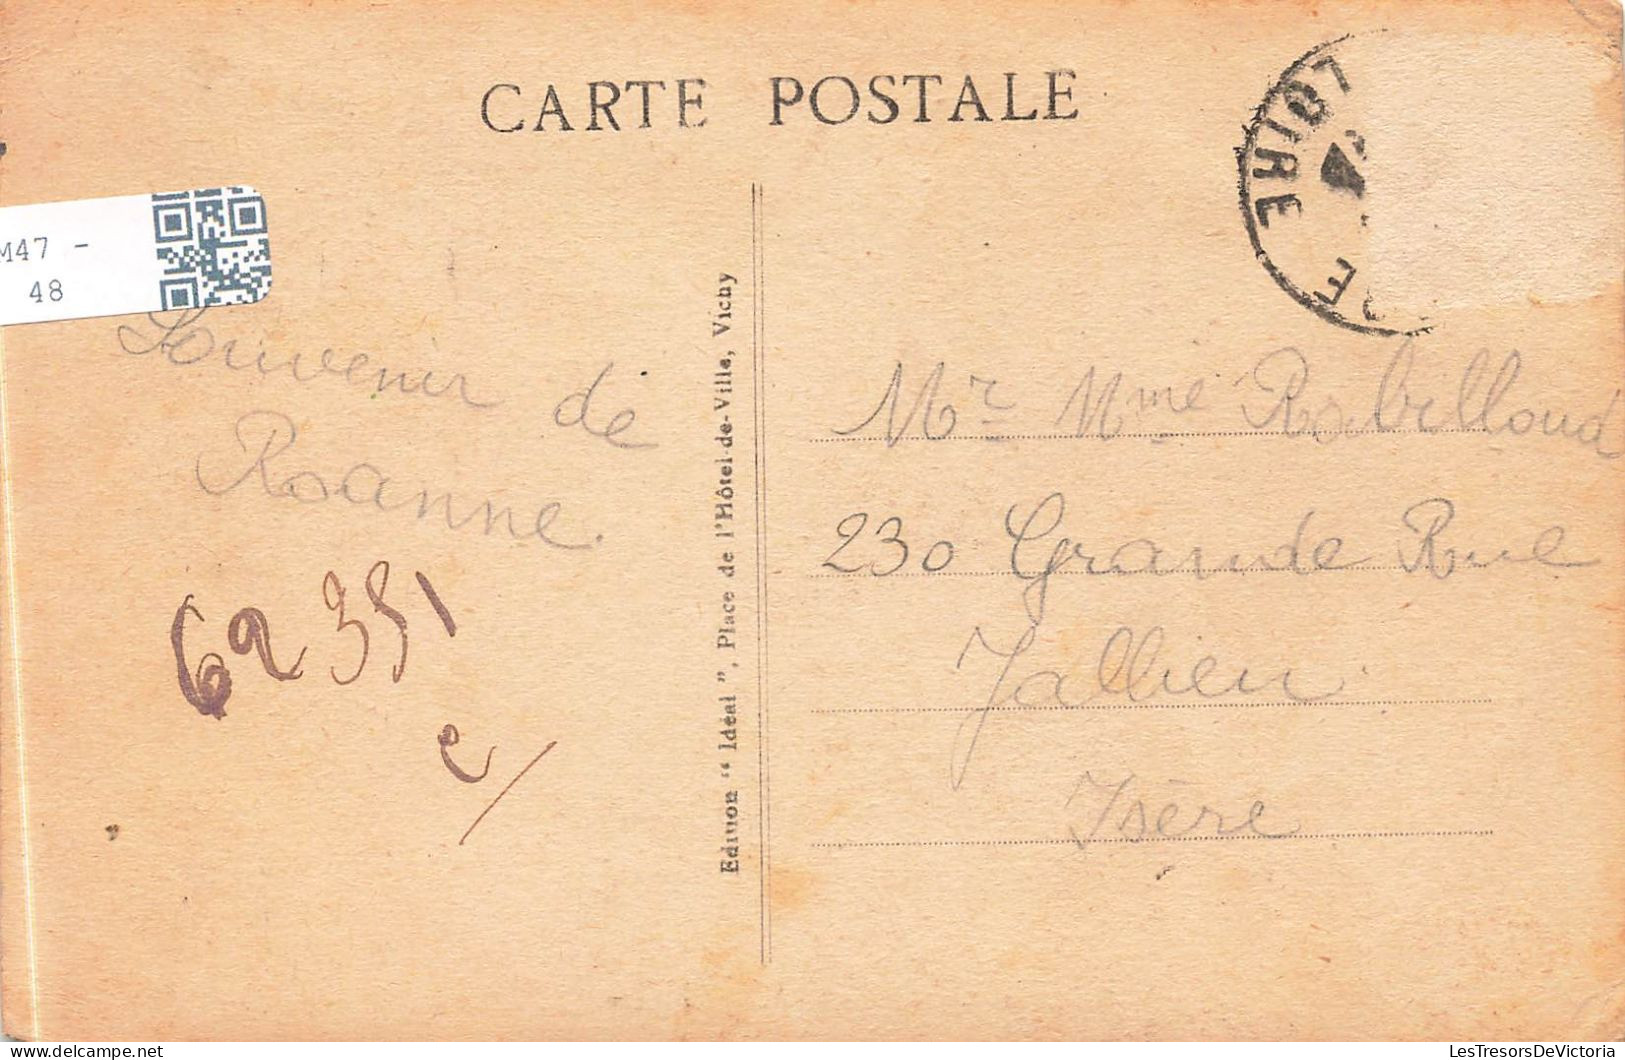 CARTE POSTALE
LOIRE
M47 -
48
Souvenir de
Roanne.
62351
e/
Edition “ Idéal ”, Place de l'Hôtel-de-Ville, Vichy
Mr Mme Rabilloud
230 Grande Rue
Jallieu
Isère
LesTresorsDeVictoria
delcampe.net